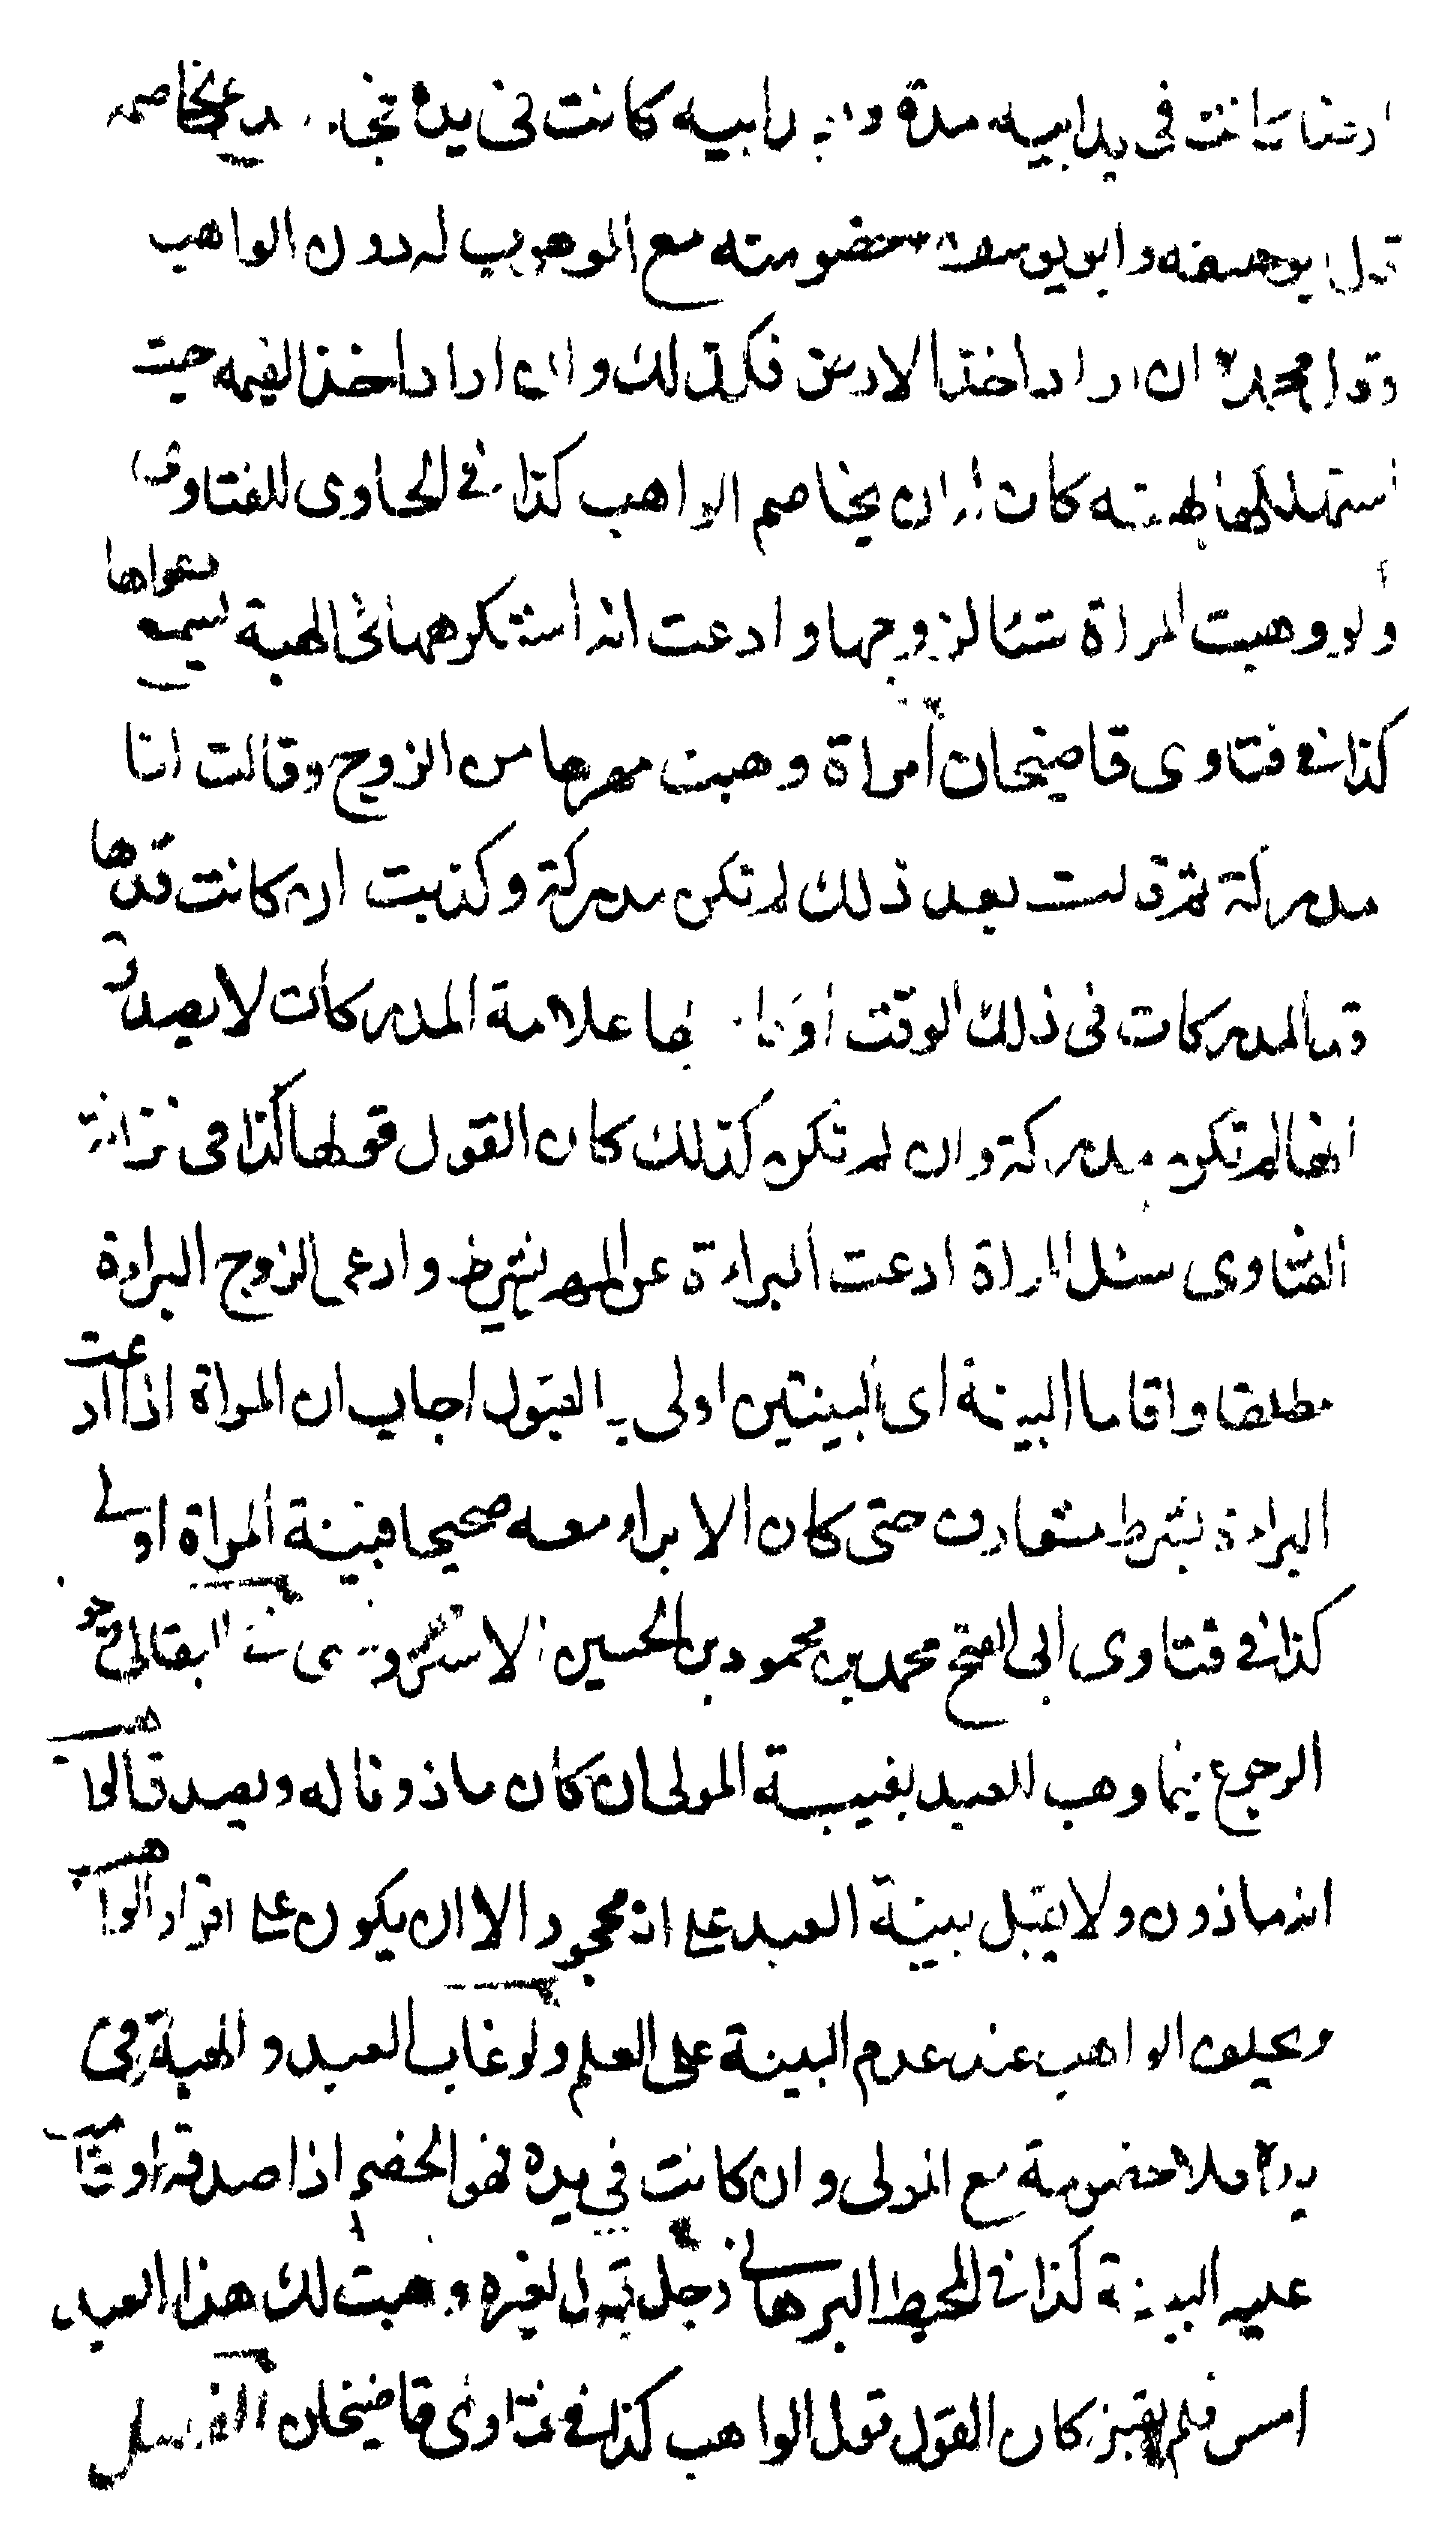 ارضا كانت فى يد ابيه مدة و رابيه كانت فى يده تخاصمه
قال ابو حنيفه وابو يوسف خصومته مع الموهوب له دون الواهب
وقال محمد ان اراد اخذ الارض فكذلك وان اراد اخذ القيمه حيث
استهلكها بالهبة كان له ان يخاصم الواهب كذا فى الحاوى للفتاوى
ولو وهبت المراة شيئا لزوجها وادعت انه استكرهها فى الهبة تسمع دعواها
كذا فى فتاوى قاضيخان امراة وهبت مهرها من الزوج وقالت انا
مدركة ثم قالت بعد ذلك لم تكن مدركة وكذبت ان كانت قدها
قد المدركات فى ذلك الوقت او بها علامة المدركات لا يصدق
انها لم تكن مدركة وان لم تكن كذلك كان القول قولها كذا فى خزانة
الفتاوى سئل المراة ادعت البراءة عن المهر بشرط وادعى الزوج البراءة
مطلقا واقاما البينة اى البينتين اولى بالقبول اجاب ان المراة اذا ادعت
البراءة بشرط متعارف حتى كان الابراء معه صحيحا فبينة المراة اولى
كذا فى فتاوى ابى الفتح محمد بن محمود بن الحسين الاستروشنى فى البقالى
الرجوع فيما وهب للعبد بغيبة المولى ان كان ماذونا له ويصدق الواهب
انه ماذون ولا يقبل بينة العبد على انه محجور الا ان يكون على اقرار الواهب
ويحلف الواهب عند عدم البينة على العلم ولو غاب العبد والهبة فى
يده فلا خصومة مع المولى وان كانت فى يده فهو الخصم اذا صدقه او قامت
عليه البينة كذا فى المحيط البرهانى رجل قال لغيره وهبت لك هذا العبد
امس فلم يقبل كان القول قول الواهب كذا فى فتاوى قاضيخان الفصل